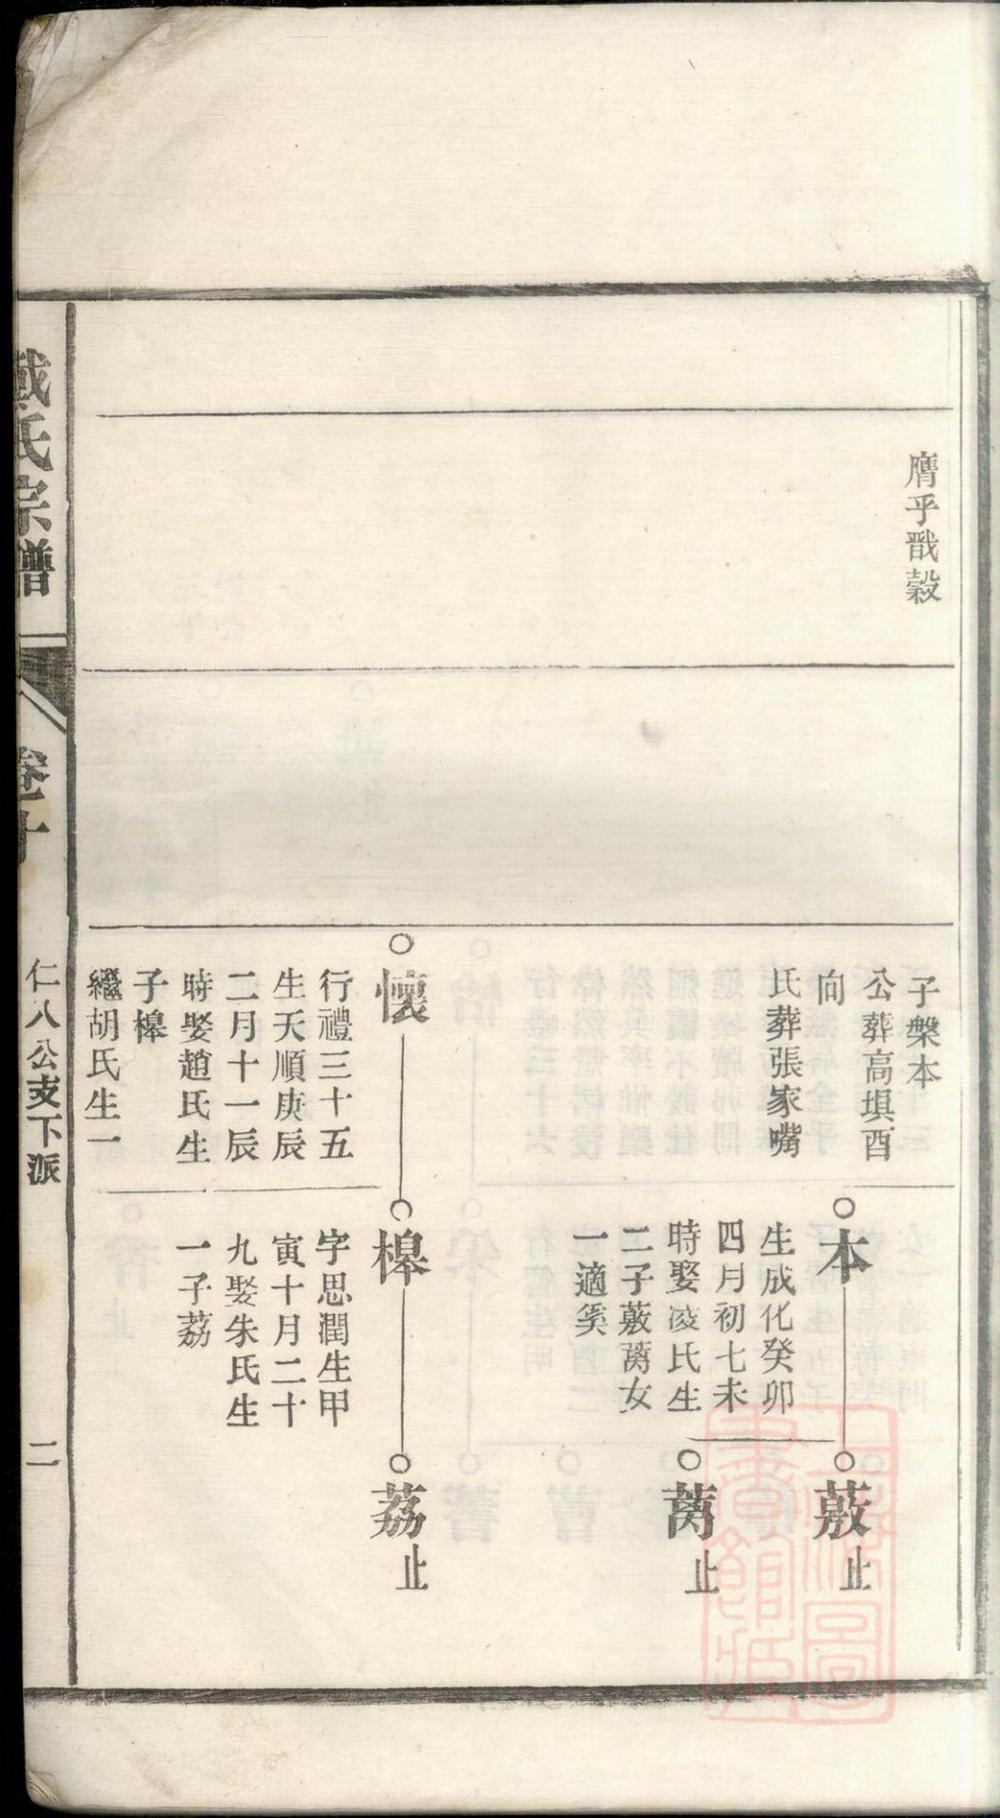 膺乎戩穀
子槃本
公葬高塤酉
向
氏葬張家嘴
懷
行禮三十五
生天順庚辰
二月十一辰
時娶趙氏生
子槔
繼胡氏生一
本
生成化癸卯
四月初七未
時娶凌氏生
二子蔜蒿女
一適奚
槔
字思潤生甲
寅十月二十
九娶朱氏生
一子荔
蔜止
止
荔止
戴氏宗譜
卷十
仁八公支下派
二